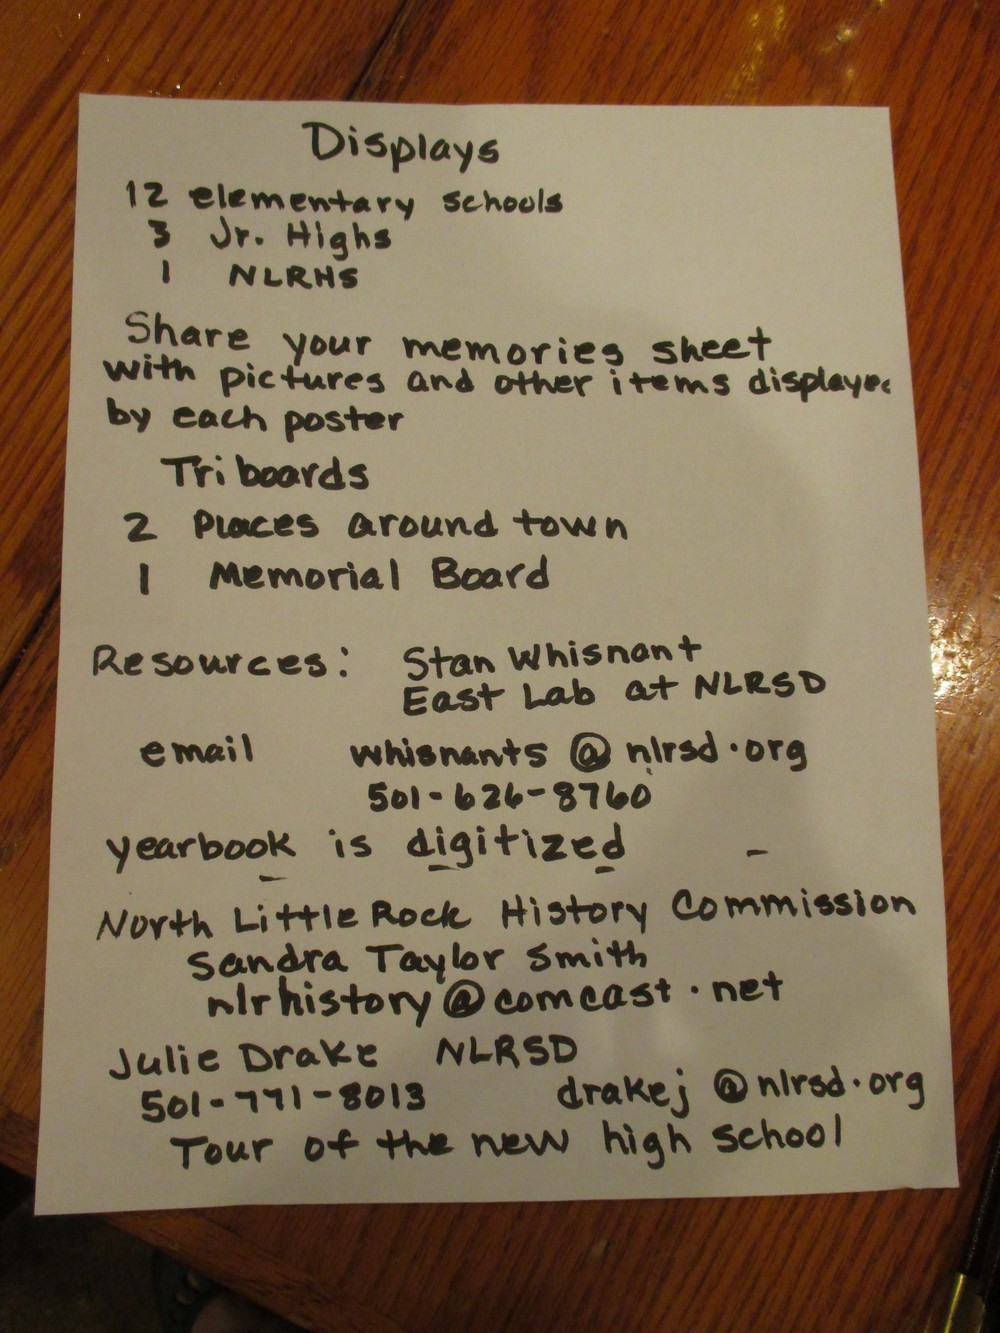 Displays
12 elementary schools
3 Jr. Highs
1 NLRHS
Share your memories sheet
with pictures and other items displayed
by each poster
Tri boards
2 Places around town
1 Memorial Board
Resources: Stan Whisnant
East Lab at NLRSD
email whisnants @ nlrsd.org
501-626-8760
yearbook is digitized
North Little Rock History Commission
Sandra Taylor Smith
nlrhistory@comcast.net
Julie Drake NLRSD
501-771-8013 drakej @nlrsd.org
Tour of the new high school